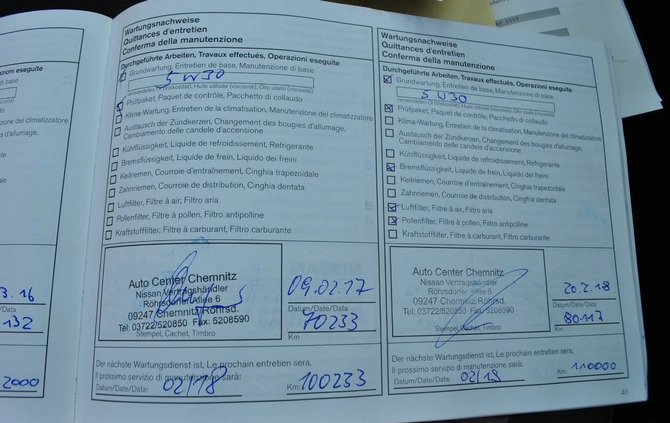 Wartungsnachweise
Quittances d'entretien
Conferma della manutenzione
Durchgeführte Arbeiten, Travaux effectués, Operazioni eseguite
Grundwartung, Entretien de base, Manutenzione di base
5 W30
verwendetes Öl (Viskosität), Huile utilisée (viscosité), Olio usato (viscosità)
Prüfpaket, Paquet de contrôle, Pacchetto di collaudo
Klima-Wartung, Entretien de la climatisation, Manutenzione del climatizzatore
Austausch der Zündkerzen, Changement des bougies d'allumage,
Cambiamento delle candele d'accensione
Kühlflüssigkeit, Liquide de refroidissement, Refrigerante
Bremsflüssigkeit, Liquide de frein, Liquido dei freini
Keilriemen, Courroie d'entraînement, Cinghia trapezoidale
Zahnriemen, Courroie de distribution, Cinghia dentata
Luftfilter, Filtre à air, Filtro aria
Pollenfilter, Filtre à pollen, Filtro antipolline
Kraftstofffilter, Filtre à carburant, Filtro carburante
Auto Center Chemnitz
Nissan Vertragshändler
Röhrsdorfer Allee 6
09247 Chemnitz/Röhrsd.
Tel: 03722/520850 Fax: 5208590
Stempel, Cachet, Timbro
09.02.17
Datum/Date/Data
70233
Km
Der nächste Wartungsdienst ist, Le prochain entretien sera,
Il prossimo servizio di manutenzione sarà:
Datum/Date/Data: 02/18 Km: 100233
Wartungsnachweise
Quittances d'entretien
Conferma della manutenzione
Durchgeführte Arbeiten, Travaux effectués, Operazioni eseguite
Grundwartung, Entretien de base, Manutenzione di base
5 W30
verwendetes Öl (Viskosität), Huile utilisée (viscosité), Olio usato (viscosità)
Prüfpaket, Paquet de contrôle, Pacchetto di collaudo
Klima-Wartung, Entretien de la climatisation, Manutenzione del climatizzatore
Austausch der Zündkerzen, Changement des bougies d'allumage,
Cambiamento delle candele d'accensione
Kühlflüssigkeit, Liquide de refroidissement, Refrigerante
Bremsflüssigkeit, Liquide de frein, Liquido dei freini
Keilriemen, Courroie d'entraînement, Cinghia trapezoidale
Zahnriemen, Courroie de distribution, Cinghia dentata
Luftfilter, Filtre à air, Filtro aria
Pollenfilter, Filtre à pollen, Filtro antipolline
Kraftstofffilter, Filtre à carburant, Filtro carburante
Auto Center Chemnitz
Nissan Vertragshändler
Röhrsdorfer Allee 6
09247 Chemnitz/Röhrsd.
Tel: 03722/520850 Fax: 5208590
Stempel, Cachet, Timbro
20.2.18
Datum/Date/Data
80117
Km
Der nächste Wartungsdienst ist, Le prochain entretien sera,
Il prossimo servizio di manutenzione sarà:
Datum/Date/Data: 02/19 Km: 110000
41